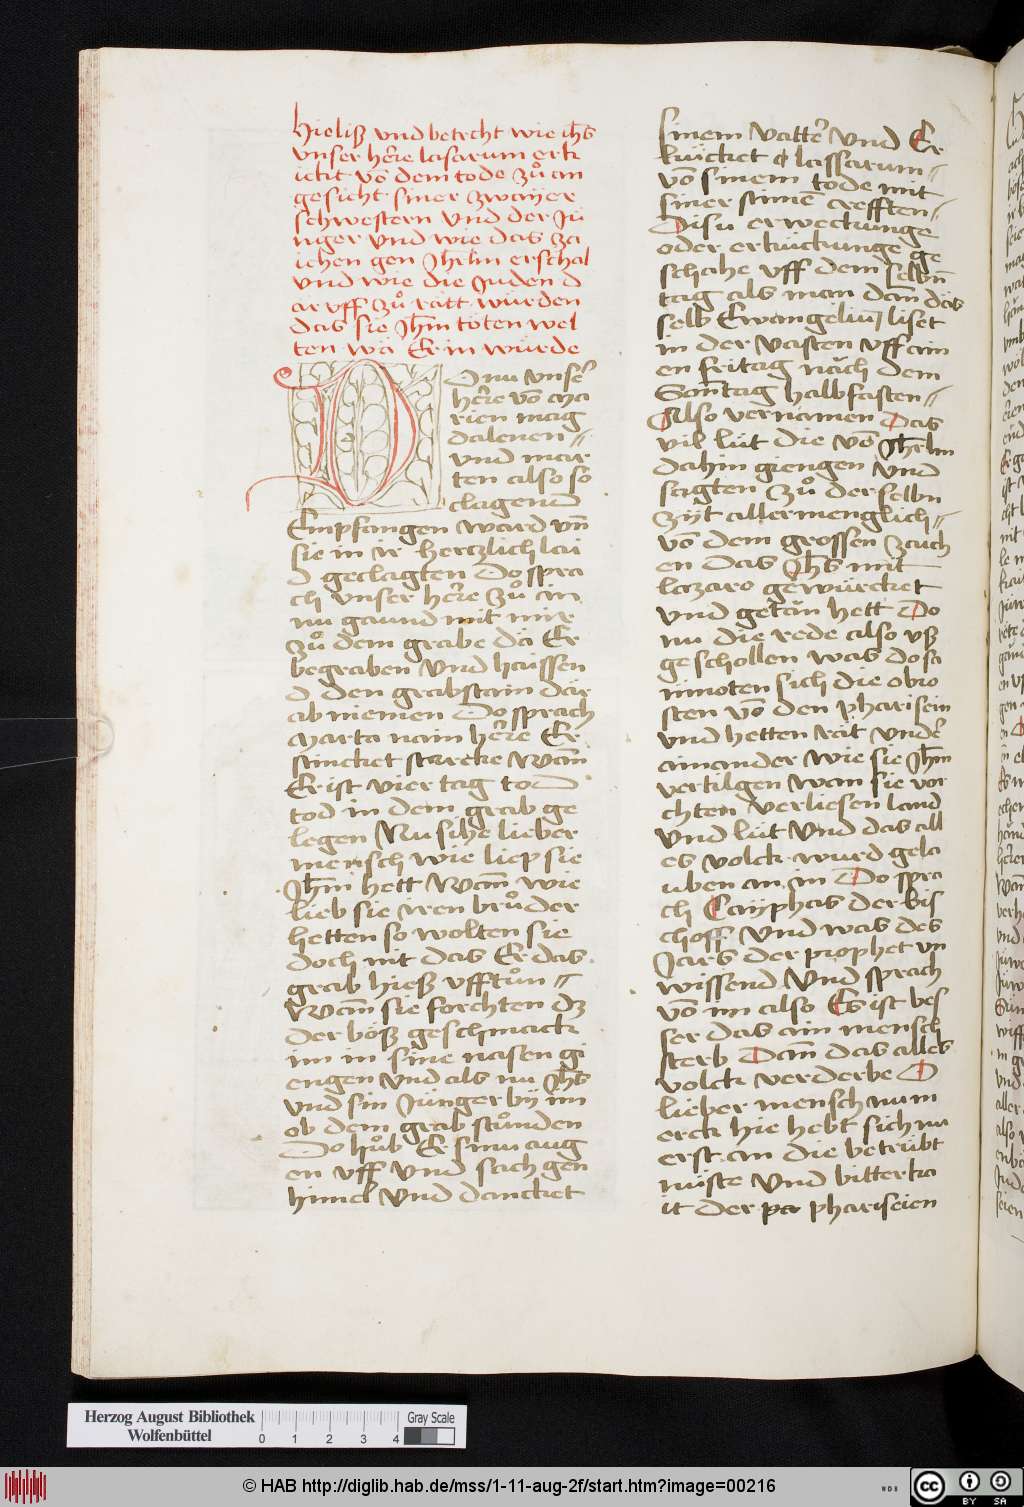 Hie liß vnd betrcht wie ih̄s
vnser hēre lasarum erk
ickt vō dem tode zů an
gesicht siner zwayer
schwestern vnd der iü
nger vnd wie das za
ichen gen Jhrlm erschal
vnd wie die Juden d
ar vff zů rätt würden
das sie Jh̄m töten wel
ten wā Er in würde
Do nu vnser
hēre vō ma
rien mag
dalenen
vnd mar
ten also so
clagend
Empfangen ward vn̄
sie in ir hertzlich lai
d geclagten Do spra
ch vnser hēre zů in
nu gaund mit mir
zů dem grabe dā Er
begraben vnd haissen
d den grabstain dār
ab niemen Do sprach
Marta nain hēre Er
stincket starcke Wan̄
Er ist vier tag tod
tod in dem grab ge
legen Nu sihe lieber
mensch wie liep sie
Jh̄m hett Wan̄ wie
lieb sie iren brůder
hetten so wolten sie
doch nit das Er das
grab hieß vfftůn
Wan̄ sie forchten dz
der böß geschmack
im in sine nasen gi
engen vnd als nu Jh̄s
vnd sin Jünger by im
ob dem grab stůnden
Do hůb Er sinu aug
en vff vnd sach gen
himel vnd dancket
sinem vatter vnd Er
kücket lassarum
vō sinem tode mit
siner stimē crefften
Disu erweckunge
oder erkückunge ge
schahe vff dem selbn̄
tag als man dan̄ das
selb Ewangeliū liset
in der vasten vff ain
en fritag nāch dem
Sontag halbfasten
Also vernamen Das
vil lüt die vō Jhrlm
dahin giengen vnd
sagten zů der selbn
zyt allermenglich
vō dem grossen zaich
en das Jh̄s mit
lazaro gewürcket
vnd getan hett Do
nu die rede also vß
geschollen was do sa
mnoten sich die obro
sten vō den pharisein
vnd hetten rät vnder
ainander wie sie Jh̄m
vertilgen wan sie vor
chten verliesen land
vnd lüt vnd das all
es volck wurd gela
uben an in Do spra
ch Cayphas der bis
choff vnd was des
Jars der prophet vn
wissend vnd sprach
vō im also Es ist bes
ser das ain mensch
sterb Dan̄ das alles
volck verderbe O
lieber mensch num
erck hie hebt sich nu
erst an die betrübt
nüste vnd bitterka
it der pa phariseien
Herzog August Bibliothek
Wolfenbüttel
0 1 2 3 4
Gray Scale
© HAB http://diglib.hab.de/mss/1-11-aug-2f/start.htm?image=00216
WDB
cc BY SA